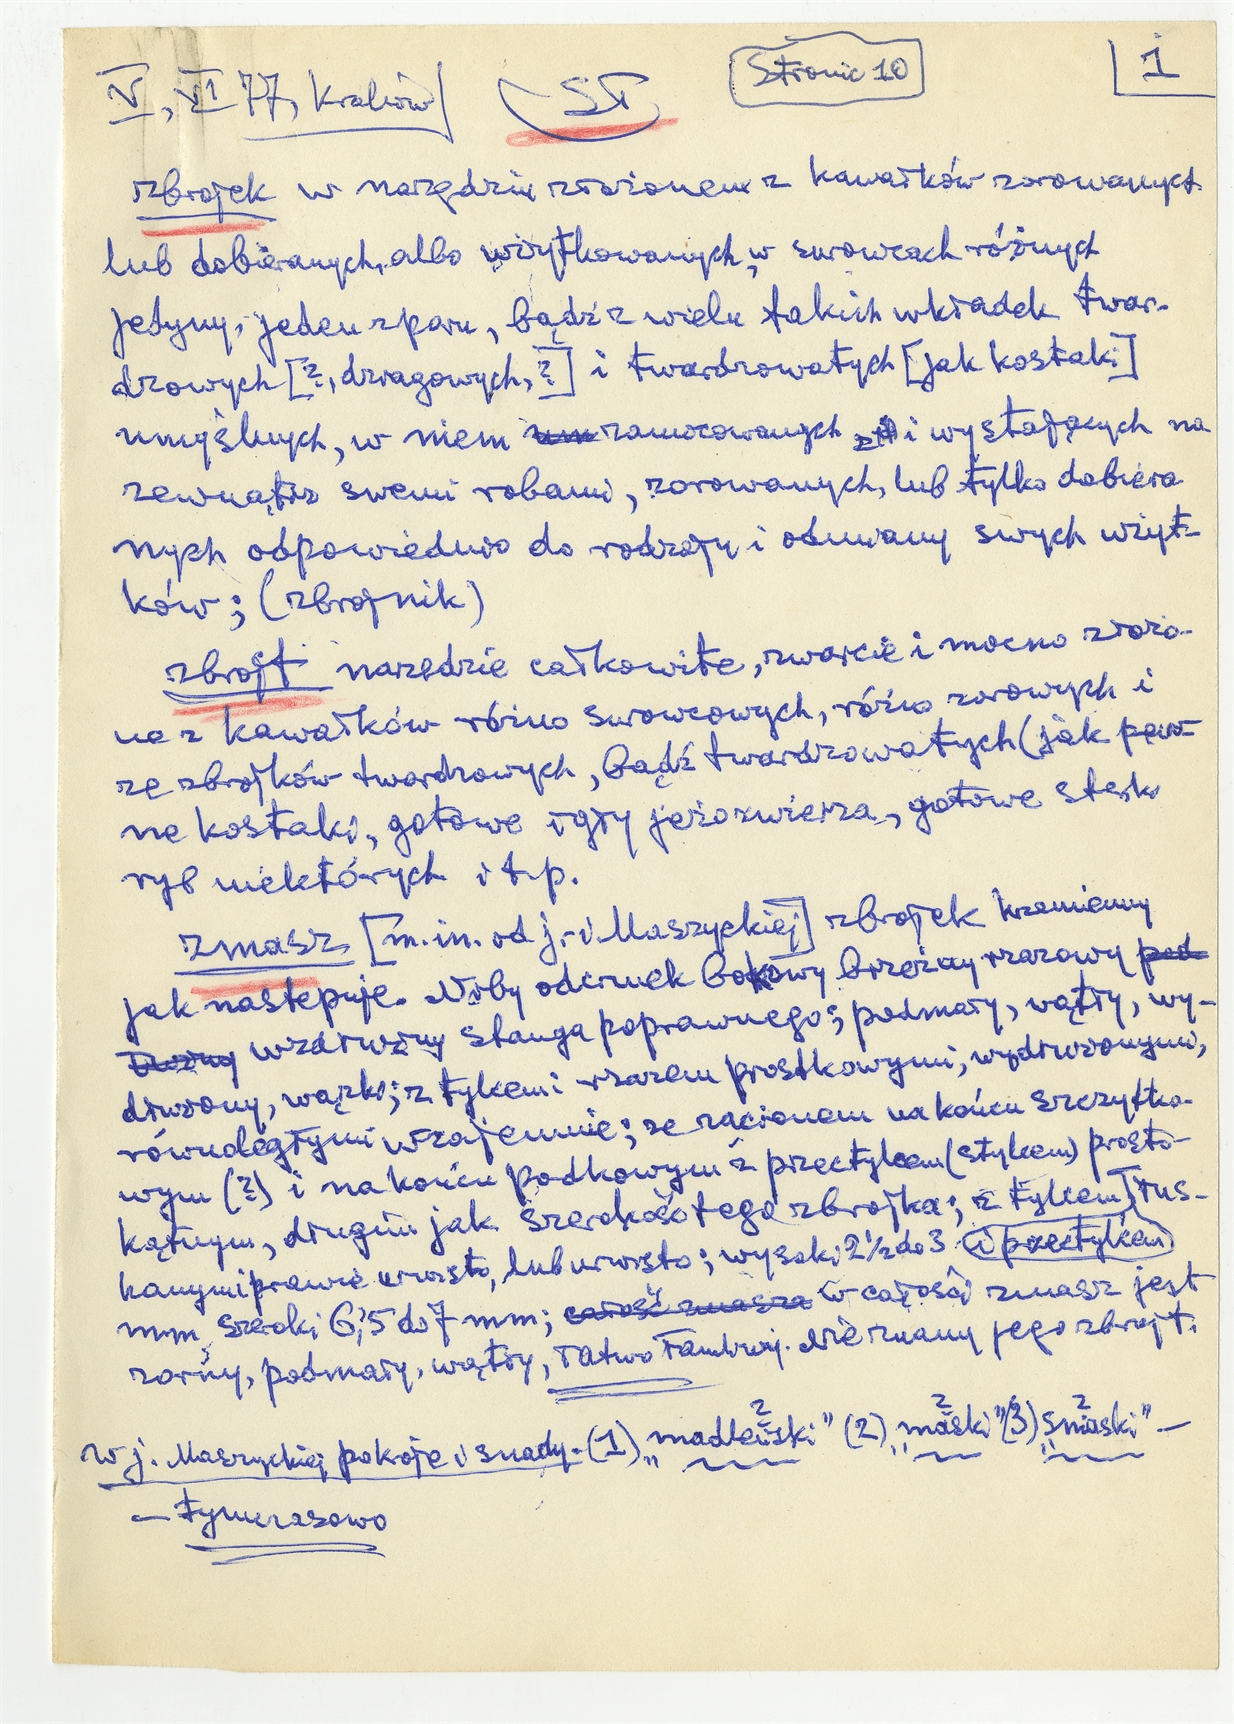 V, VI 77, Kraków
ST
Stronic 10
1
zbrojek w narzędziu złożonem z kawałków zorowanych
lub dobieranych, albo użytkowanych, w surowcach różnych
jedyny, jeden z paru, bądź z wielu takich wkładek twar-
dzowych [?, dzragowych, ?] i twardzowatych [jak kostaki]
umyślnych, w niem zamocowanych i wystających na
zewnątrz swemi robami, zorowanych, lub tylko dobiera
nych odpowiednio do rodzaju i odmiany swych użyt-
ków; (zbrojnik)
zbrojt narzędzie całkowite, zwarcie i mocno złożo-
ne z kawałków różno surowcowych, różno zorowych i
ze zbrojków twardzowych, bądź twardzowatych (jak pew-
ne kostaki, gotowe igły jeżozwierza, gotowe
ryb niektórych i t.p.
zmasz [m.in. od j. Maszyckiej] zbrojek krzemienny
jak następuje. Niby odcinek bokowy brzeżny rzazowy pod
wzdłużny stanga poprawnego; podmały, wątły, wy-
dłużony, wązki; z tylcem i rzazem prostkowymi, wydłużonymi,
równoległymi wzajemnie; ze zacionem na końcu szczytko-
wym (?) i na końcu podkowym z przectylcem (stylcem) prosto-
kątnym, drugim jak szerokość tego zbrojka; z tylcem łus-
kanym prawie urwisto, lub urwisto; wysoki 2½ do 3 i przectylcem
mm, szeroki 6,5 do 7 mm; całość zmasza w całości zmasz jest
zorny, podmały, wątły, łatwo łamliwy. Nie znamy jego zbrojt.
w j. Maszyckiej pokoje i snady - (1) „madleński” (2) „maski” (3) „smaski” —
— tymczasowo